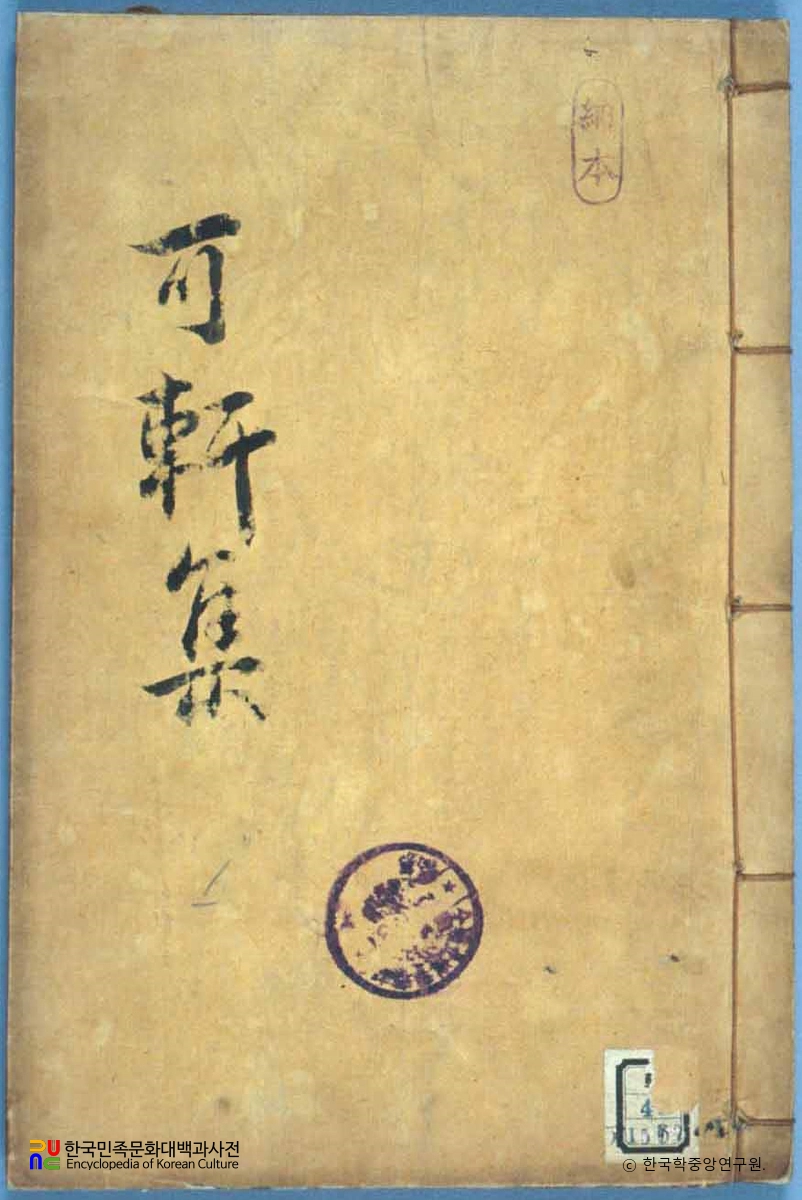 可軒集
納本
4
1562
한국민족문화대백과사전
Encyclopedia of Korean Culture
© 한국학중앙연구원.